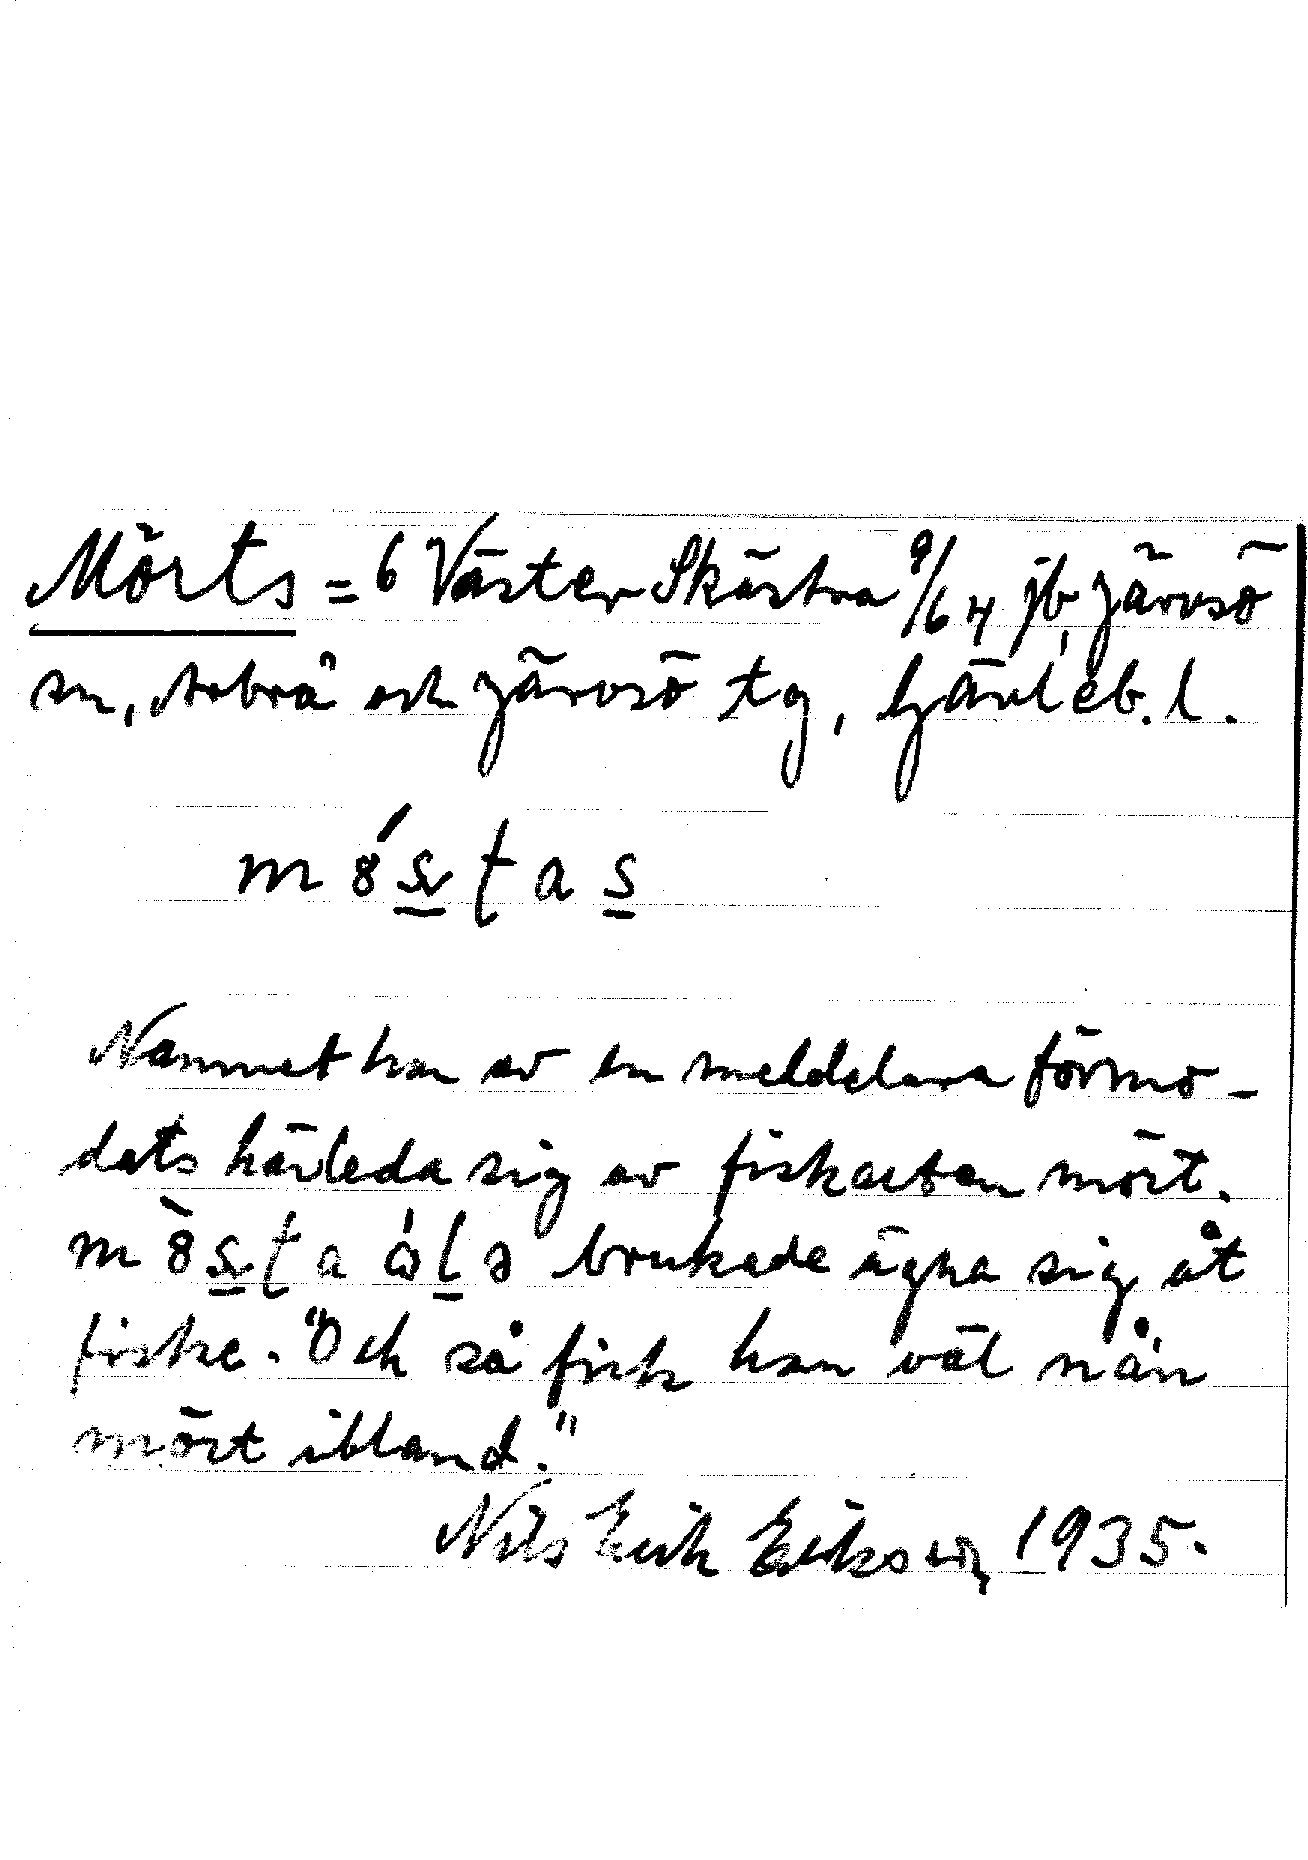 Mörts = 6 Väster Skästra 9/64 jb, Järvsö
sn, Arbrå och Järvsö tg, Gävleb. l.
Namnet har av en meddelare förmo-
dats härleda sig av fiskarten mört.
brukade ägna sig åt
fiske. "Och så fick han väl nån
mört ibland."
Nils Erik Eriksson, 1935.